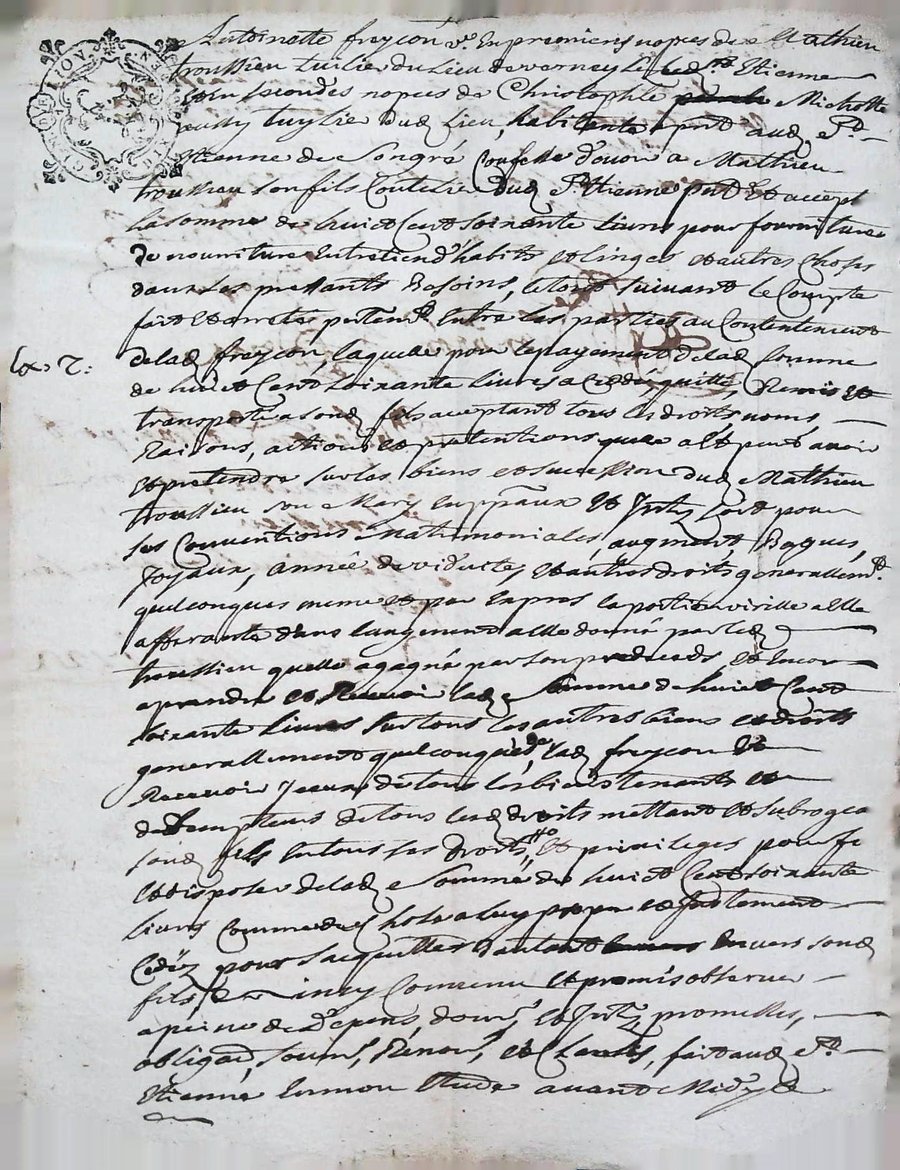 Antoinette freycon v.e En premieres nopces de Mathieu
troussieu tuilier du Lieu de verney les St Etienne
et En secondes nopces de Christophle Micholle
aussy tuylie dud Lieu, habitante a pnt aud St
Etienne de Son gré Confesse d'avoir a Mathieu
troussieu son fils Coutelie dud St Etienne pnt Et accept
la somme de huict Cent soixante Livres pour fourniture
de nourriture Entretien d'habits et linges et autres Choses
dans Ses pressants Besoins, le tout suivant le Compte
fait Et arreté Entre les parties au Contentement
de lad freycon, laquelle pour le payement de lad somme
de huict Cent soixante Livres a Cédé, quitté, Remis et
transporté a sond fils acceptant tous les droits, noms,
Raisons, actions et pretentions quelle a Et peut avoir
Et pretendre sur les biens et succession dud Mathieu
troussieu son Mary En ppaux Et Jntz soit pour
ses Conventions Matrimoniales, augment, Bagues,
Joyaux, année de viduité, Et autres droits generallemt
quelconques meme et par Exprès la portion virille a Elle
afferante dans l'augment a Elle donné par led
troussieu quelle a gagné par son predeceds, et Encor
a prendre et Recevoir lad somme de huict Cent
soixante Livres sur tous les autres biens et droits
generallement quelconques de lad freycon Et
Recevoir Jceux de tous les biens tenants et
de tous lesd droits mettant et subrogeant
sond fils En tous ses droits et privileges pour fe
et disposer de lad somme de huict Cent soixante
Livres Comme de Chose a luy propre et justement
Cédéz pour s'acquitter d'autant Envers sond
fils ainsy Convenu et promis observer
a peine de Depens, dom, et Jntz, promesses,
obligaõ, soum, Renon, et Clauses, fait aud St
Etienne En mon Etude avant Midy